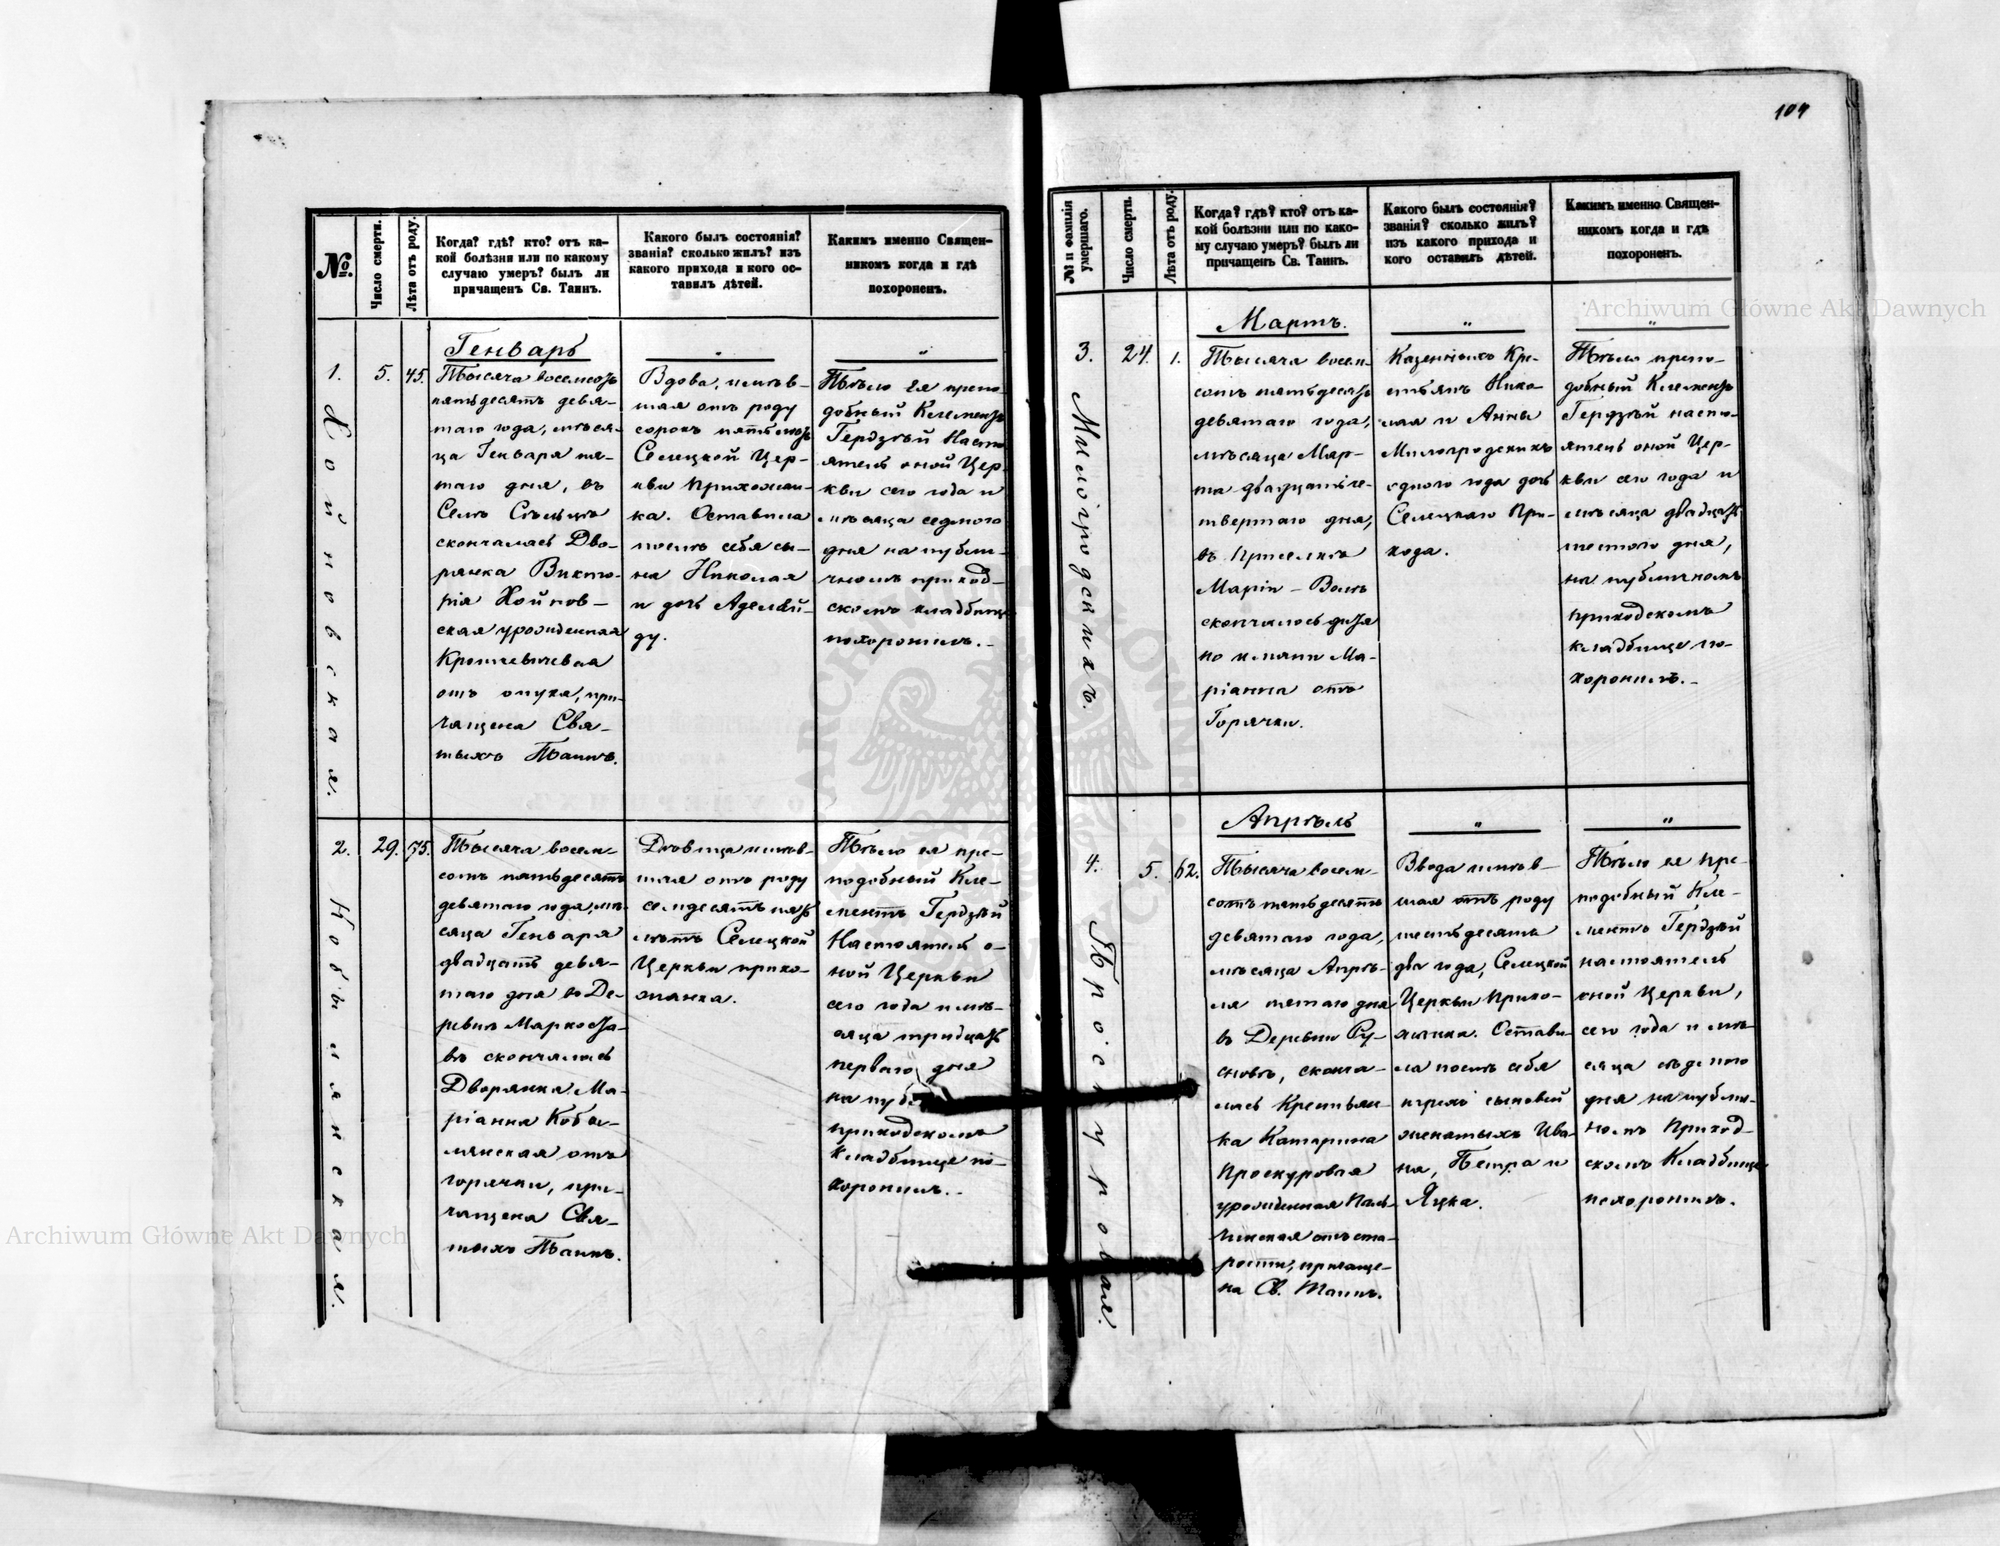 104
№.
Число смерти.
Лѣта отъ роду.
Когда? гдѣ? кто? отъ ка-
кой болѣзни или по какому
случаю умеръ? былъ ли
причащенъ Св. Таинъ.
Какого былъ состоянія?
званія? сколько жилъ? изъ
какого прихода и кого ос-
тавилъ дѣтей.
Какимъ именно Священ-
никомъ когда и гдѣ
похороненъ.
Генварь
1.
5.
45.
Хойновская.
Тысяча восемсотъ
пятьдесятъ девя-
таго года, мѣся-
ца Генваря пя-
таго дня, въ
Селѣ Сѣльцѣ
скончалась Дво-
рянка Викто-
рія Хойнов-
ская урожденная
отъ опуха, при-
чащена Свя-
тыхъ Таинъ.
Вдова, имѣв-
шая отъ роду
сорокъ пять лѣтъ
Селецкой Цер-
кви Прихожан-
ка. Оставила
послѣ себя сы-
на Николая
и дочь Аделаи-
ду.
Тѣло ея препо-
добный Клементъ
Гердзѣй Насто
ятель оной Цер-
кви сего года и
мѣсяца седмого
дня на публи-
чномъ приход-
скомъ кладбище
похоронилъ.-
2.
29.
75.
Кобылянская.
Тысяча восем-
сотъ пятьдесятъ
девятаго года, мѣ-
сяца Генваря
двадцать девя-
таго дня въ Де-
ревнѣ Маркоста-
въ скончалась
Дворянка Ма-
ріанна Кобы-
лянская отъ
горячки, при-
чащена Свя-
тыхъ Таинъ.
Дѣвица имѣв-
шая отъ роду
семдесятъ пять
лѣтъ Селецкой
Церкви прихо-
жанка.
Тѣло ея пре-
подобный Кле-
ментъ Гердзѣй
Настоятель о-
ной Церкви
сего года и мѣ-
сяца тридцать
перваго дня
на публ
приходскомъ
кладбище по-
хоронилъ.-
№ и фамилія
умершаго.
Число смерти.
Лѣта отъ роду.
Когда? гдѣ? кто? отъ ка-
кой болѣзни или по како-
му случаю умеръ? былъ ли
причащенъ Св. Таинъ.
Какого былъ состоянія?
званія? сколько жилъ?
изъ какого прихода и
кого оставилъ дѣтей.
Какимъ именно Священ-
никомъ когда и гдѣ
похороненъ.
Мартъ.
3.
24.
1.
Милогродскихъ.
Тысяча восем-
сотъ пятьдесятъ
девятаго года,
мѣсяца Мар-
та двадцать че-
твертаго дня,
въ Приселкѣ
Маріи-Волѣ
скончалось дитя
по имяни Ма-
ріанна отъ
Горячки.
Казенныхъ Кре-
стьянъ Нико-
лая и Анны
Милогродскихъ
одного года дочь
Селецкаго При-
хода.
Тѣло препо-
добный Клементъ
Гердзѣй насто-
ятель оной Цер-
кви сего года и
мѣсяца двадцать
шестого дня,
на публичномъ
приходскомъ
кладбище по-
хоронилъ.-
Апрѣль
4.
5.
62.
Проскуровая.
Тысяча восем-
сотъ пятьдесятъ
девятаго года,
мѣсяца Апрѣ-
ля пятаго дня
въ Деревни Ру-
сновъ, сконча-
лась Крестьян-
ка Катарина
Проскуровая
урожденная Паль-
чинская отъ ста-
рости, причаще-
на Св. Таинъ.
Вдова имѣв-
шая отъ роду
шестьдесятъ
два года, Селецкой
Церкви Прихо-
жанка. Остави-
ла послѣ себя
трехъ сыновей
женатыхъ Ива-
на, Петра и
Яцка.
Тѣло ея пре-
подобный Кле-
ментъ Гердзѣй
настоятель
оной Церкви,
сего года и мѣ-
сяца седьмого
дня на публич-
номъ Приход-
скомъ Кладбище
похоронилъ.
Archiwum Główne Akt Dawnych
Archiwum Główne Akt Dawnych